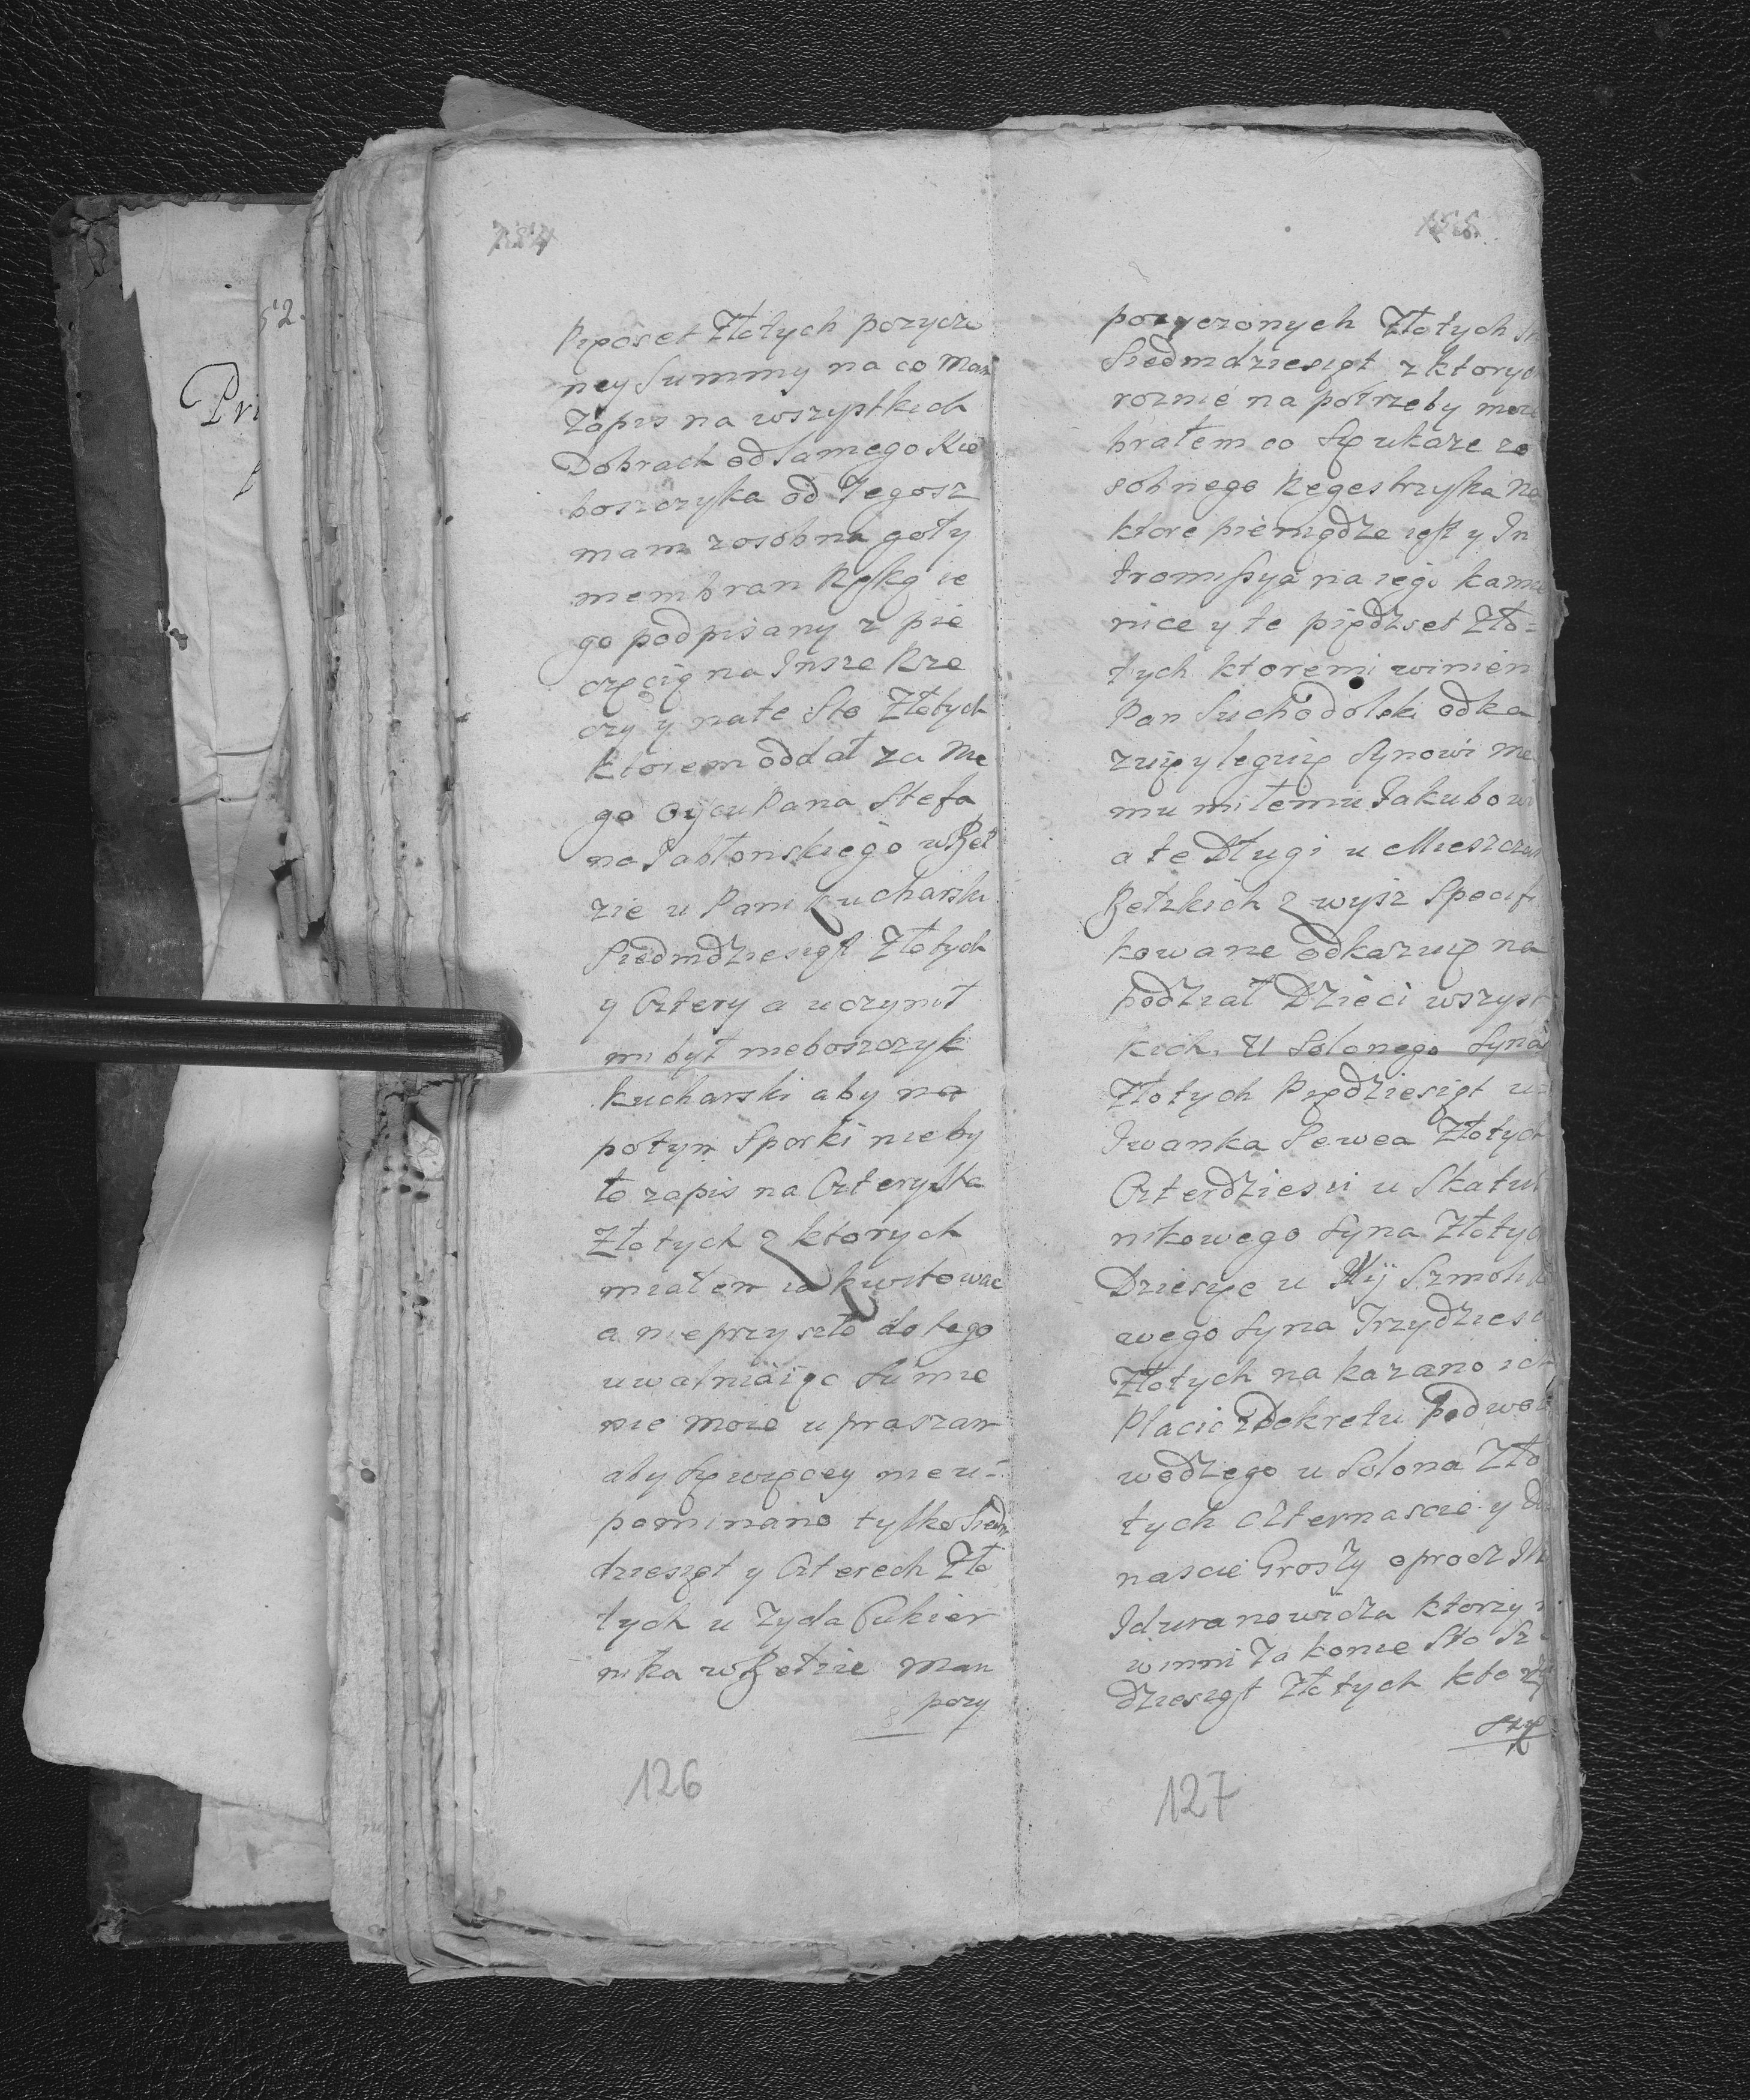 Pięćset Złotych pozyczo
ney Summy na co Mam
Zapis na wszystkich
Dobrach od Samego Nie
boszczyka od Tegosz
mam zosobna goły
membran Ręką ie
go podpisany z pie
częcią na Insze Rze
czy y na te Sto Złotych
ktorem oddał za Me
go Oycu Pana Stefa
na Jabłonskiego w Beł
zie u Pani Kucharski
Siedmdziesiąt Złotych
y Cztery a uczynił
mi był nieboszczyk
Kucharski aby na
potym Sporki nieby
ło zapis na Czterysta
Złotych z ktorych
miałem ia kwitowac
a nieprzyszło do tego
uwalniaiąc Sumie
nie moie upraszam
aby Się więcey nieu=
pominano tylko Siedm
dziesiąt y Czterech Zło
tych u Zyda Cukier
nika w Bełzie Mam
pozy
126
pozyczonych Złotych
Siedmdziesiąt z ktorych
roznie na potrzeby moie
brałem co Się ukaze zo
sobnego Regestrzyka Na
ktore pieniądze iest y In
tromissya na iego kamie
nice y te pięćdzset Zło=
tych ktoremi winien
Pan Suchodolski odka
zuię y leguię Synowi me
mu miłemu Jakubowi
a te Długi u Mieszczan
Bełzkich zwysz Specifi
kowane odkazuię na
podział Dzieci wszyst
kich. U Solonego Syna
Złotych Pięćdziesiąt u=
Iwanka Sewca Złotych
Czterdziesci u Skatul
nikowego Syna Złotych
Dziesięc u Szmoli
wego Syna Trzydziesci
Złotych na kazano ich
Płacic z Dekretu Podwo
wodzego u Solona Zło
tych Czternascie y
nascie Groszy oprocz
Iduranowicza ktorzy
winni Za konie Sto
dziesiąt Złotych
127
52.
Pri